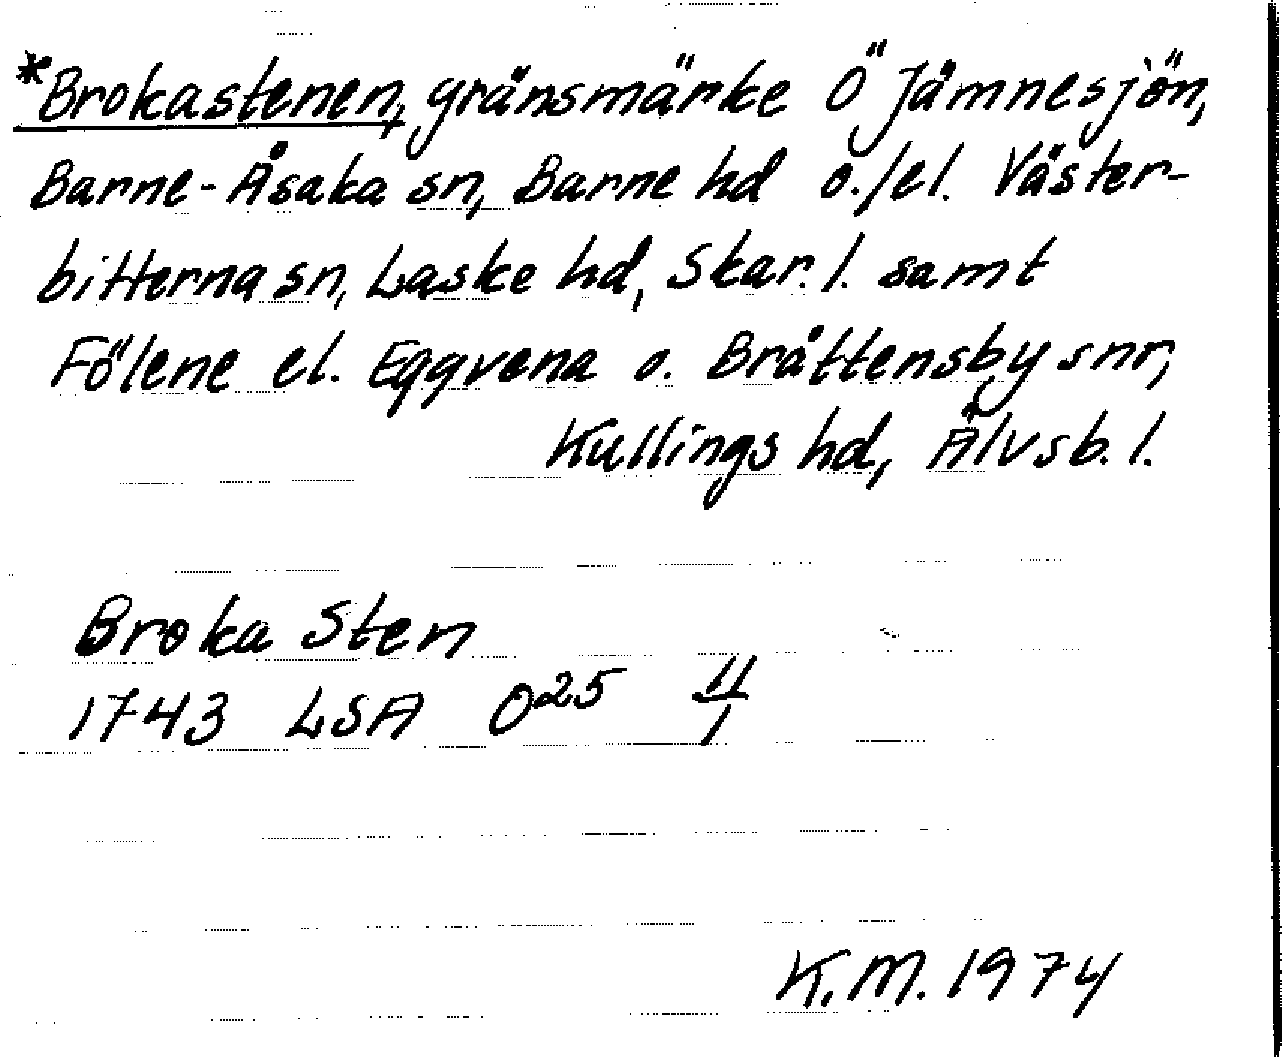 *Brokastenen, gränsmärke Ö Jämnesjön,
Barne-Åsaka sn, Barne hd o./el. Väster-
bitterna sn, Laske hd, Skar. l. samt
Fölene el. Eggvena o. Bråttensby snr,
Kullings hd, Älvsb. l.
Broka Sten
1743 LSA O²⁵ 11/1
K.M. 1974